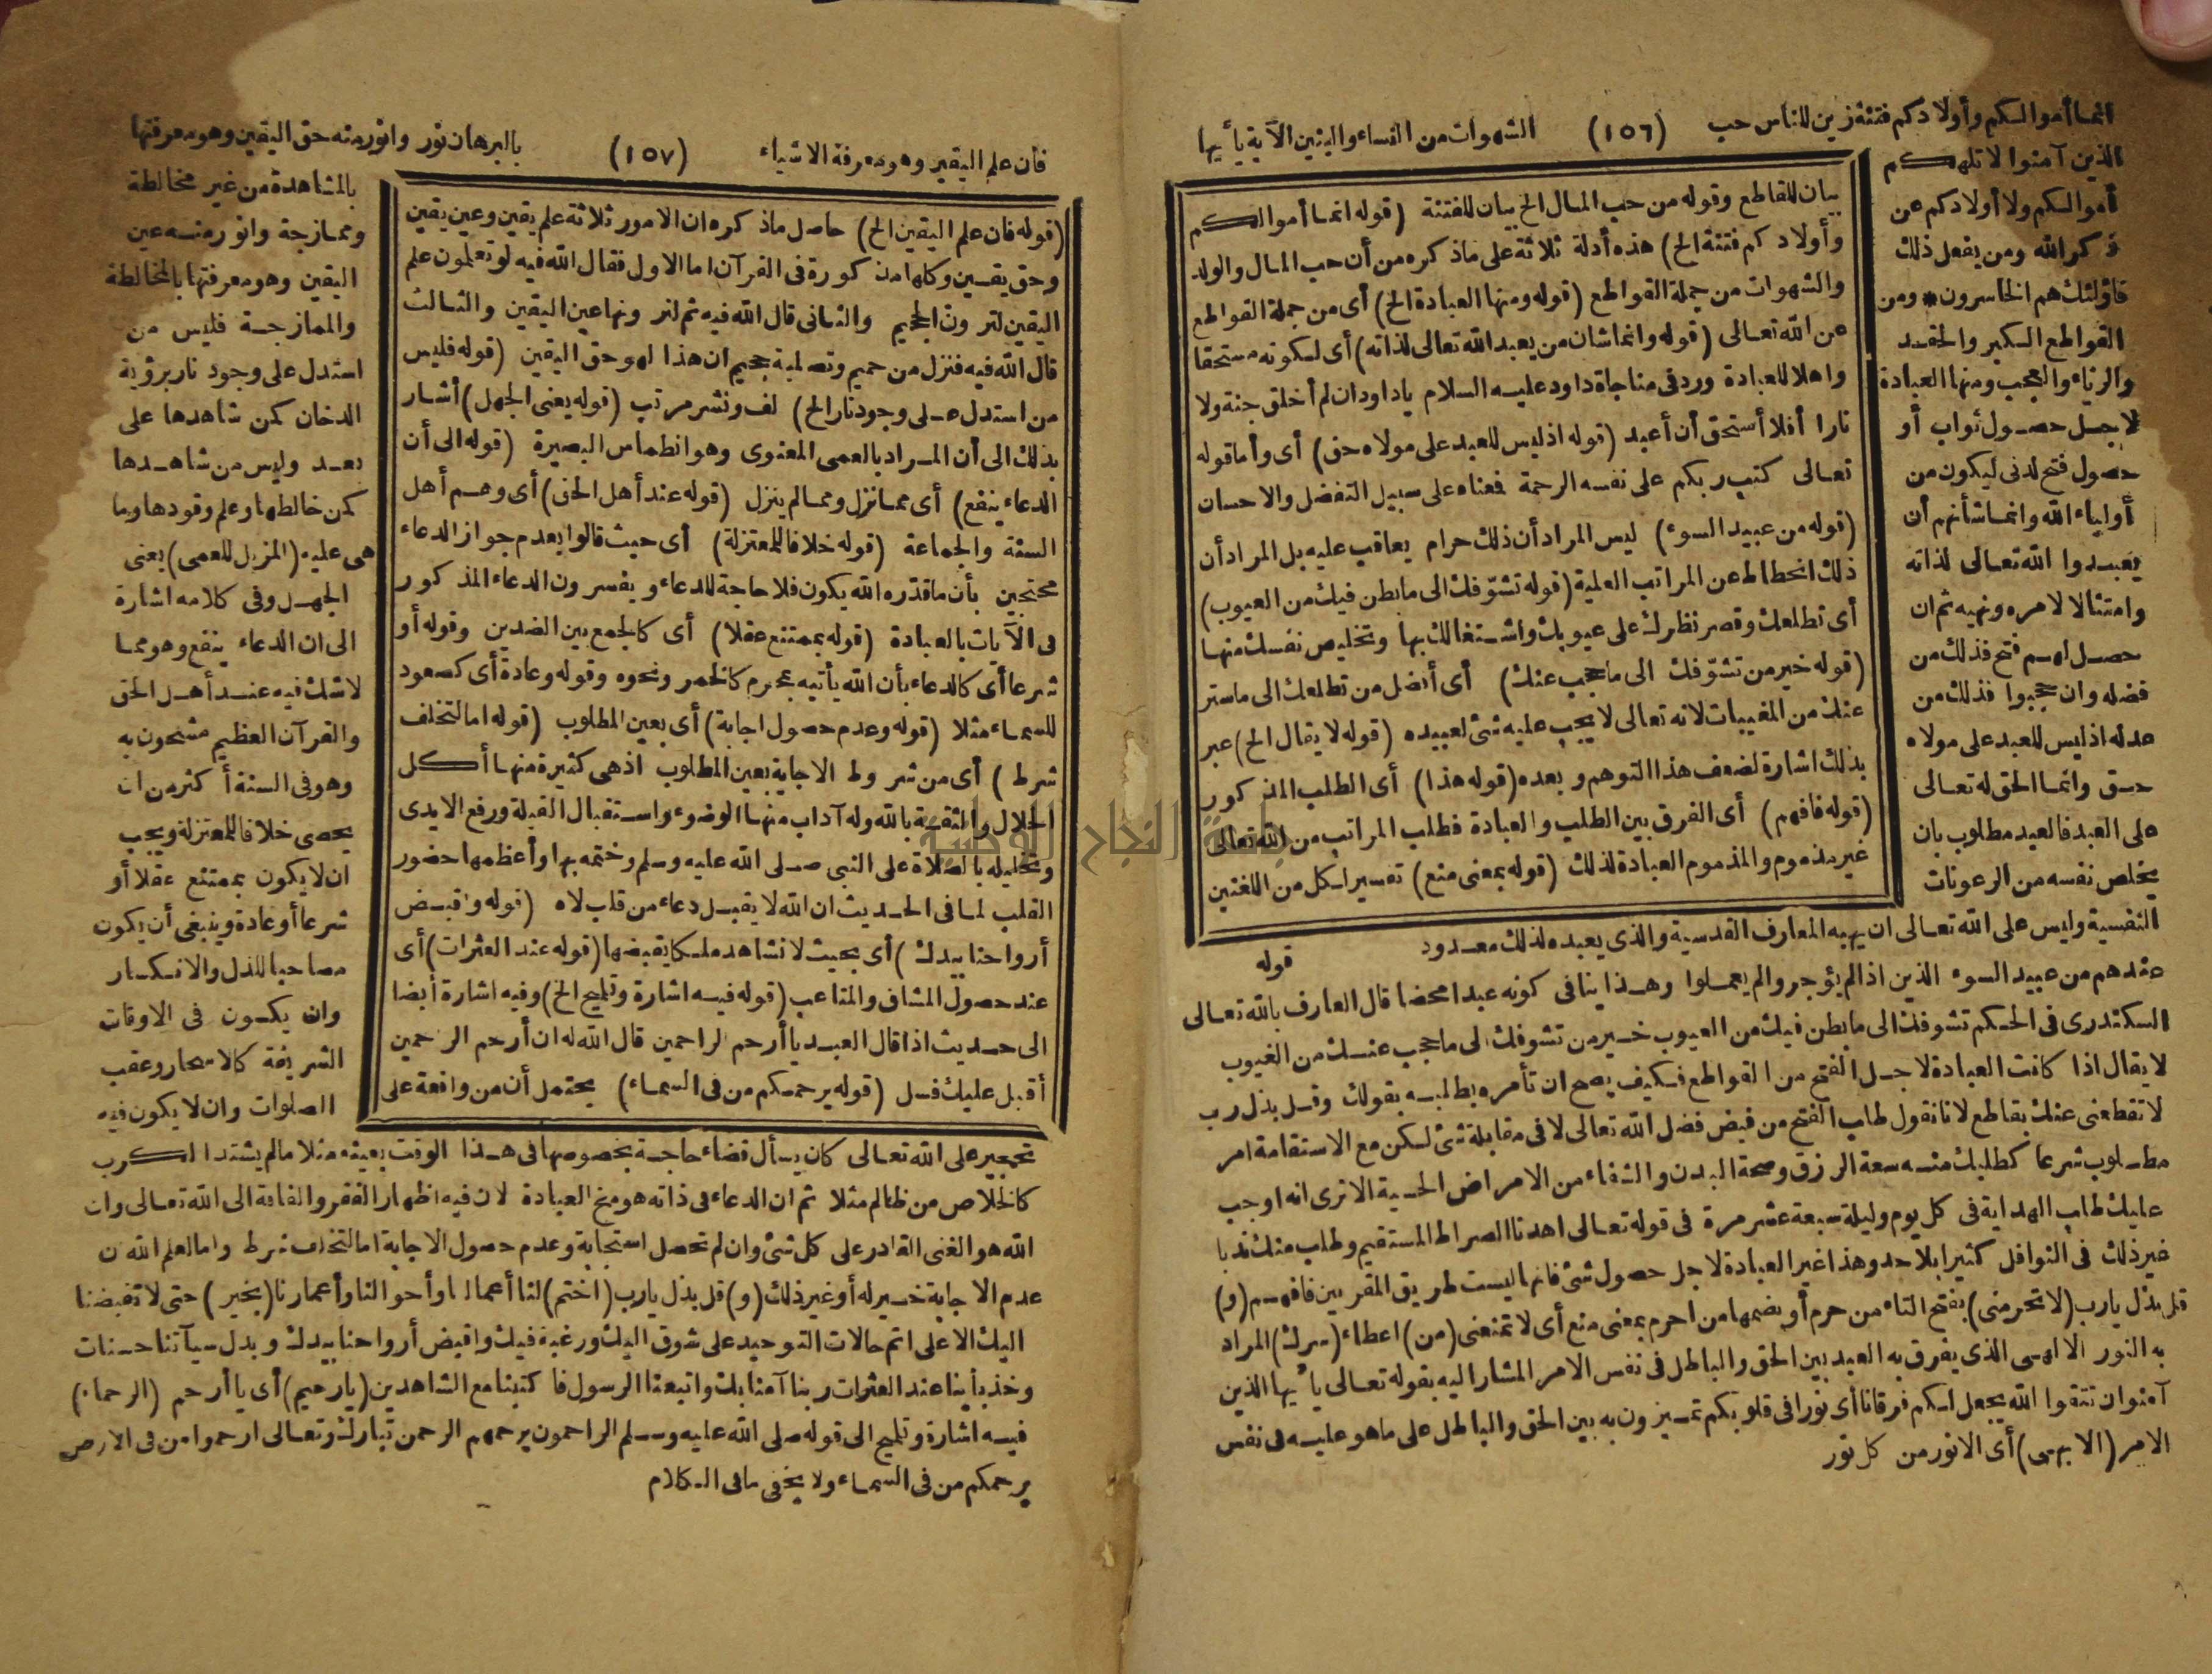 انما أموالكم وأولادكم فتنة زين للناس حب (١٥٦) الشهوات من النساء والبنين الآية يا أيها
الذين آمنوا لا تلهكم
أموالكم ولا أولادكم عن
ذكر الله ومن يفعل ذلك
فاولئك هم الخاسرون * ومن
القواطع الكبر والحقد
والرياء والعجب ومنها العبادة
لاجل حصول ثواب أو
حصول فتح لدنى ليكون من
أولياء الله وانما شأنهم أن
يعبدوا الله تعالى لذاته
وامتثالا لامره ونهيه ثم ان
حصل لهم فتح فذلك من
فضله وان حجبوا فذلك من
عدله اذ ليس للعبد على مولاه
حق وانما الحق له تعالى
على العبد فالعبد مطلوب بان
يخلص نفسه من الرعونات
النفسية وليس على الله تعالى ان يهبه المعارف القدسية والذى يعبده لذلك معدود
عندهم من عبيد السوء الذين اذا لم يؤجروا لم يعملوا وهذا ينافى كونه عبدا محضا قال العارف بالله تعالى
السكندرى فى الحكم تشوفك الى ما بطن فيك من العيوب خير من تشوفك الى ما حجب عنك من الغيوب
لا يقال اذا كانت العبادة لاجل الفتح من القواطع فكيف يصح ان تأمره بطلبه بقولك وقل بذل رب
لا تقطعنى عنك بقاطع لانا نقول طلب الفتح من فيض فضل الله تعالى لا فى مقابلة شئ لكن مع الاستقامة امر
مطلوب شرعا كطلبك منه سعة الرزق وصحة البدن والشفاء من الامراض الحسية الا ترى انه اوجب
عليك طلب الهداية فى كل يوم وليلة سبعة عشر مرة فى قوله تعالى اهدنا الصراط المستقيم وطلب منك ندبا
غير ذلك فى النوافل كثيرا بلا حد وهذا غير العبادة لاجل حصول شئ فانها ليست طريق المقربين فافهم (و)
قل بذل يا رب (لا تحرمنى) بفتح التاء من حرم أو بضمها من احرم بمعنى منع أى لا تمنعنى (من) اعطاء (سرك) المراد
به النور الالهى الذى يفرق به العبد بين الحق والباطل فى نفس الامر المشار اليه بقوله تعالى يا أيها الذين
آمنوا ان تتقوا الله يجعل لكم فرقانا أى نورا فى قلوبكم تميزون به بين الحق والباطل على ما هو عليه فى نفس
الامر (الابهى) أى الانور من كل نور
بيان للقاطع وقوله من حب المال الخ بيان للفتنة (قوله انما أموالكم
وأولادكم فتنة الخ) هذه أدلة ثلاثة على ما ذكره من أن حب المال والولد
والشهوات من جملة القواطع (قوله ومنها العبادة الخ) أى من جملة القواطع
عن الله تعالى (قوله وانما شان من يعبد الله تعالى لذاته) أى لكونه مستحقا
واهلا للعبادة ورد فى مناجاة داود عليه السلام يا داود ان لم أخلق جنة ولا
نارا أفلا أستحق أن أعبد (قوله اذ ليس للعبد على مولاه حق) أى وأما قوله
تعالى كتب ربكم على نفسه الرحمة فمعناه على سبيل التفضل والاحسان
(قوله من عبيد السوء) ليس المراد أن ذلك حرام يعاقب عليه بل المراد أن
ذلك انحطاط عن المراتب العلمية (قوله تشوّفك الى ما بطن فيك من العيوب)
أى تطلعك وقصر نظرك على عيوبك واشتغالك بها وتخليص نفسك منها
(قوله خير من تشوّفك الى ما حجب عنك) أى أفضل من تطلعك الى ما ستر
عنك من المغيبات لانه تعالى لا يجب عليه شئ لعبيده (قوله لا يقال الخ) عبر
بذلك اشارة لضعف هذا التوهم وبعده (قوله هذا) أى الطلب المذكور
(قوله فافهم) أى الفرق بين الطلب والعبادة فطلب المراتب من الله تعالى
غير مذموم والمذموم العبادة لذلك (قوله بمعنى منع) تفسير لكل من اللغتين
قوله
فان علم اليقين وهو معرفة الاشياء (١٥٧) بالبرهان نور وانور منه حق اليقين وهو معرفتها
بالمشاهدة من غير مخالطة
وممازجة وانور منه عين
اليقين وهو معرفتها بالمخالطة
والممازجة فليس من
استدل على وجود نار برؤية
الدخان كمن شاهدها على
بعد وليس من شاهدها
كمن خالطها وعلم وقودها وما
هى عليه (المزيل للعمى) يعنى
الجهل وفى كلامه اشارة
الى ان الدعاء ينفع وهو مما
لا شك فيه عند أهل الحق
والقرآن العظيم مشحون به
وهو فى السنة أكثر من ان
يحصى خلافا للمعتزلة ويجب
ان لا يكون بممتنع عقلا أو
شرعا أو عادة وينبغى أن يكون
مصاحبا للذل والانكسار
وان يكون فى الاوقات
الشريفة كالاسحار وعقب
الصلوات وان لا يكون فيه
تحجير على الله تعالى كان يسأل قضاء حاجة بخصوصها فى هذا الوقت بعينه مثلا ما لم يشتد الكرب
كالخلاص من ظالم مثلا ثم ان الدعاء فى ذاته هو مخ العبادة لان فيه اظهار الفقر والفاقة الى الله تعالى وان
الله هو الغنى القادر على كل شئ وان لم تحصل استجابة وعدم حصول الاجابة اما لتخلف شرط واما لعلم الله ان
عدم الاجابة خير له أو غير ذلك (و) قل بذل يا رب (اختم) لنا أعمالنا وأحوالنا وأعمارنا (بخير) حتى لا تقبضنا
اليك الا على اتم حالات التوحيد على شوق اليك ورغبة فيك واقبض أرواحنا بيدك وبدل سيآتنا حسنات
وخذ بأيدينا عند العثرات ربنا آمنا بك واتبعنا الرسول فاكتبنا مع الشاهدين (يا رحيم) أى يا أرحم (الرحما)
فيه اشارة وتلميح الى قوله صلى الله عليه وسلم الراحمون يرحمهم الرحمن تبارك وتعالى ارحموا من فى الارض
يرحمكم من فى السماء ولا يخفى ما فى الكلام
(قوله فان علم اليقين الخ) حاصل ما ذكره ان الامور ثلاثة علم يقين وعين يقين
وحق يقين وكلها مذكورة فى القرآن اما الاول فقال الله فيه لو تعلمون علم
اليقين لترون الجحيم والثانى قال الله فيه ثم لترونها عين اليقين والثالث
قال الله فيه فنزل من حميم وتصلية جحيم ان هذا لهو حق اليقين (قوله فليس
من استدل على وجود نار الخ) لف ونشر مرتب (قوله يعنى الجهل) أشار
بذلك الى أن المراد بالعمى المعنوى وهو انطماس البصيرة (قوله الى أن
الدعاء ينفع) أى مما نزل ومما لم ينزل (قوله عند أهل الحق) أى وهم أهل
السنة والجماعة (قوله خلافا للمعتزلة) أى حيث قالوا بعدم جواز الدعاء
محتجين بأن ما قدّره الله يكون فلا حاجة للدعاء ويفسرون الدعاء المذكور
فى الآيات بالعبادة (قوله بممتنع عقلا) أى كالجمع بين الضدين وقوله أو
شرعا أى كالدعاء بأن الله يأتيه بمحرم كالخمر ونحوه وقوله وعادة أى كصعود
للسماء مثلا (قوله وعدم حصول اجابة) أى بعين المطلوب (قوله اما لتخلف
شرط) أى من شروط الاجابة بعين المطلوب اذ هى كثيرة منها أكل
الحلال والثقة بالله وله آداب منها الوضوء واستقبال القبلة ورفع الايدى
وتخليله بالصلاة على النبى صلى الله عليه وسلم وختمه بها وأعظمها حضور
القلب لما فى الحديث ان الله لا يقبل دعاء من قلب لاه (قوله واقبض
أرواحنا بيدك) أى بحيث لا نشاهد ملكا يقبضها (قوله عند العثرات) أى
عند حصول المشاق والمتاعب (قوله فيه اشارة وتلميح الخ) وفيه اشارة أيضا
الى حديث اذا قال العبد يا أرحم الراحمين قال الله له ان أرحم الراحمين
أقبل عليك فسل (قوله يرحمكم من فى السماء) يحتمل أن من واقعة على
جامعة النجاح الوطنية